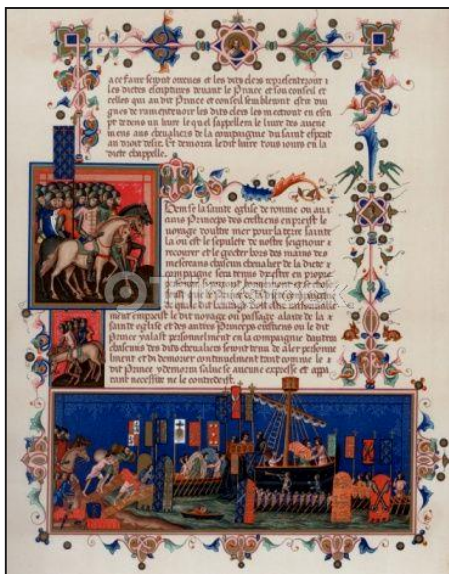 a ce faire seront et les dits clers representeront
les dictes escriptures devant le Prince et son conseil et
celles qui au dit Prince et conseil sembleront estre di
gnes de ramentevoir les dits clers les mectront en escri
pt dedens un livre le quel sappellera le livre des avene
mens aus chevaliers de la compaignie du saint esprit
au droit desir. Et demorra le dit livre tous iours en la
dicte chappelle.
Item se la sainte eglise de romme ou au
Princeps des crestiens enpreist le
voyage doultre mer pour la terre sainte
la ou est le sepulcre de nostre seignour
recourer et le gecter hors des mains des
mescreans chascun chevalier de la dicte
compagnie sera tenus destre en propre
thinkstock
ment empreist le dit voyage ou passage alaide de la
sainte eglise et des autres Princeps crestiens ou le dit
Prince yalast personelment en la compagnie dautrui
chascuns des dits chevaliers seront tenus de aler personne
lment et de demorer continuelment tant comme le
dit Prince y demorra saluc se aucune expresse et appa
rant necessite ne le contredeist.